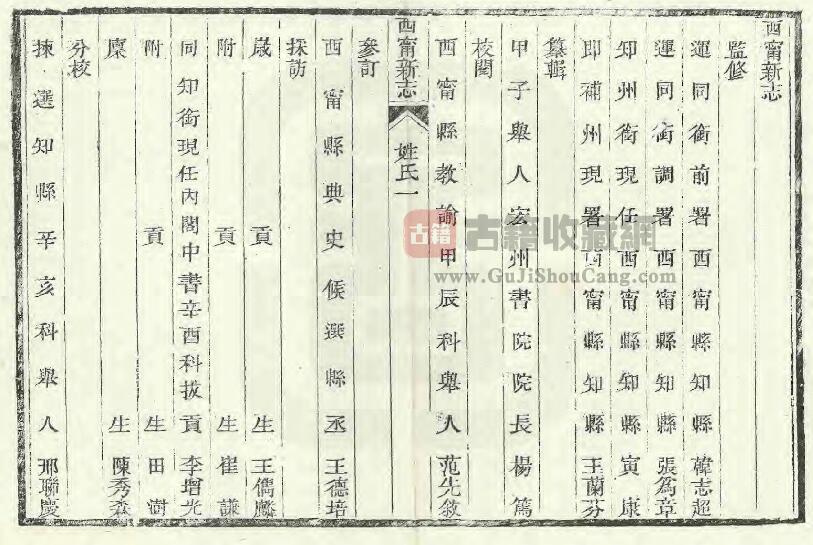 西甯新志
監修
運同銜前署西甯縣知縣韓志超
運同銜調署西甯縣知縣張爲章
知州銜現任西甯縣知縣寅康
即補州現署西甯縣知縣王蘭芬
纂輯
甲子舉人宏州書院院長楊篤
校閱
西甯縣教諭甲辰科舉人范先敘
西甯新志 姓氏一
參訂
西甯縣典史候選縣丞王德培
採訪
歲貢生王偶麟
附貢生崔謙
同知銜現任內閣中書辛酉科拔貢李增光
附貢生田澍
廩生陳秀森
分校
揀選知縣辛亥科舉人邢聯慶
古籍 古籍收藏網
www.GuJiShouCang.com